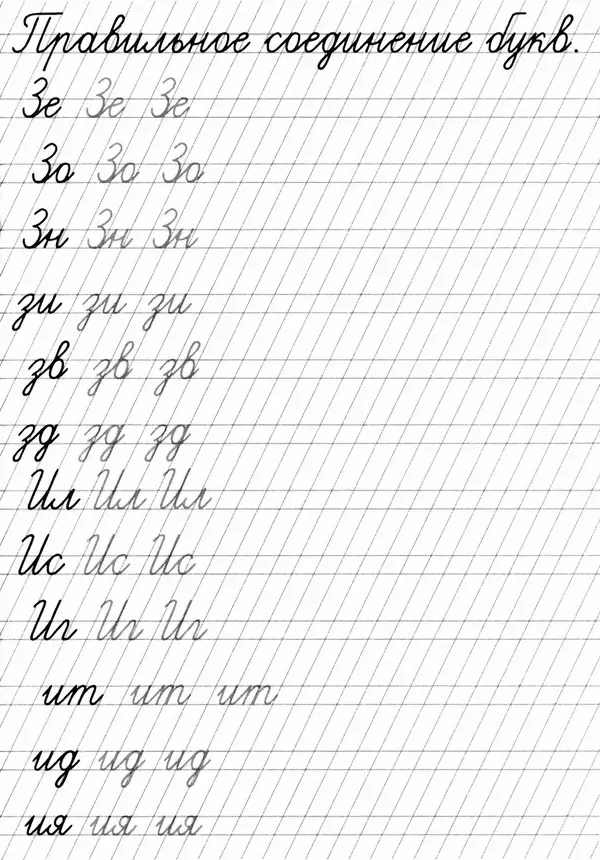 Правильное соединение букв.
Зе Зе Зе
Зо Зо Зо
Зн Зн Зн
зи зи зи
зв зв зв
зд зд зд
Ил Ил Ил
Ис Ис Ис
Иг Иг Иг
ит ит ит
ид ид ид
ия ия ия